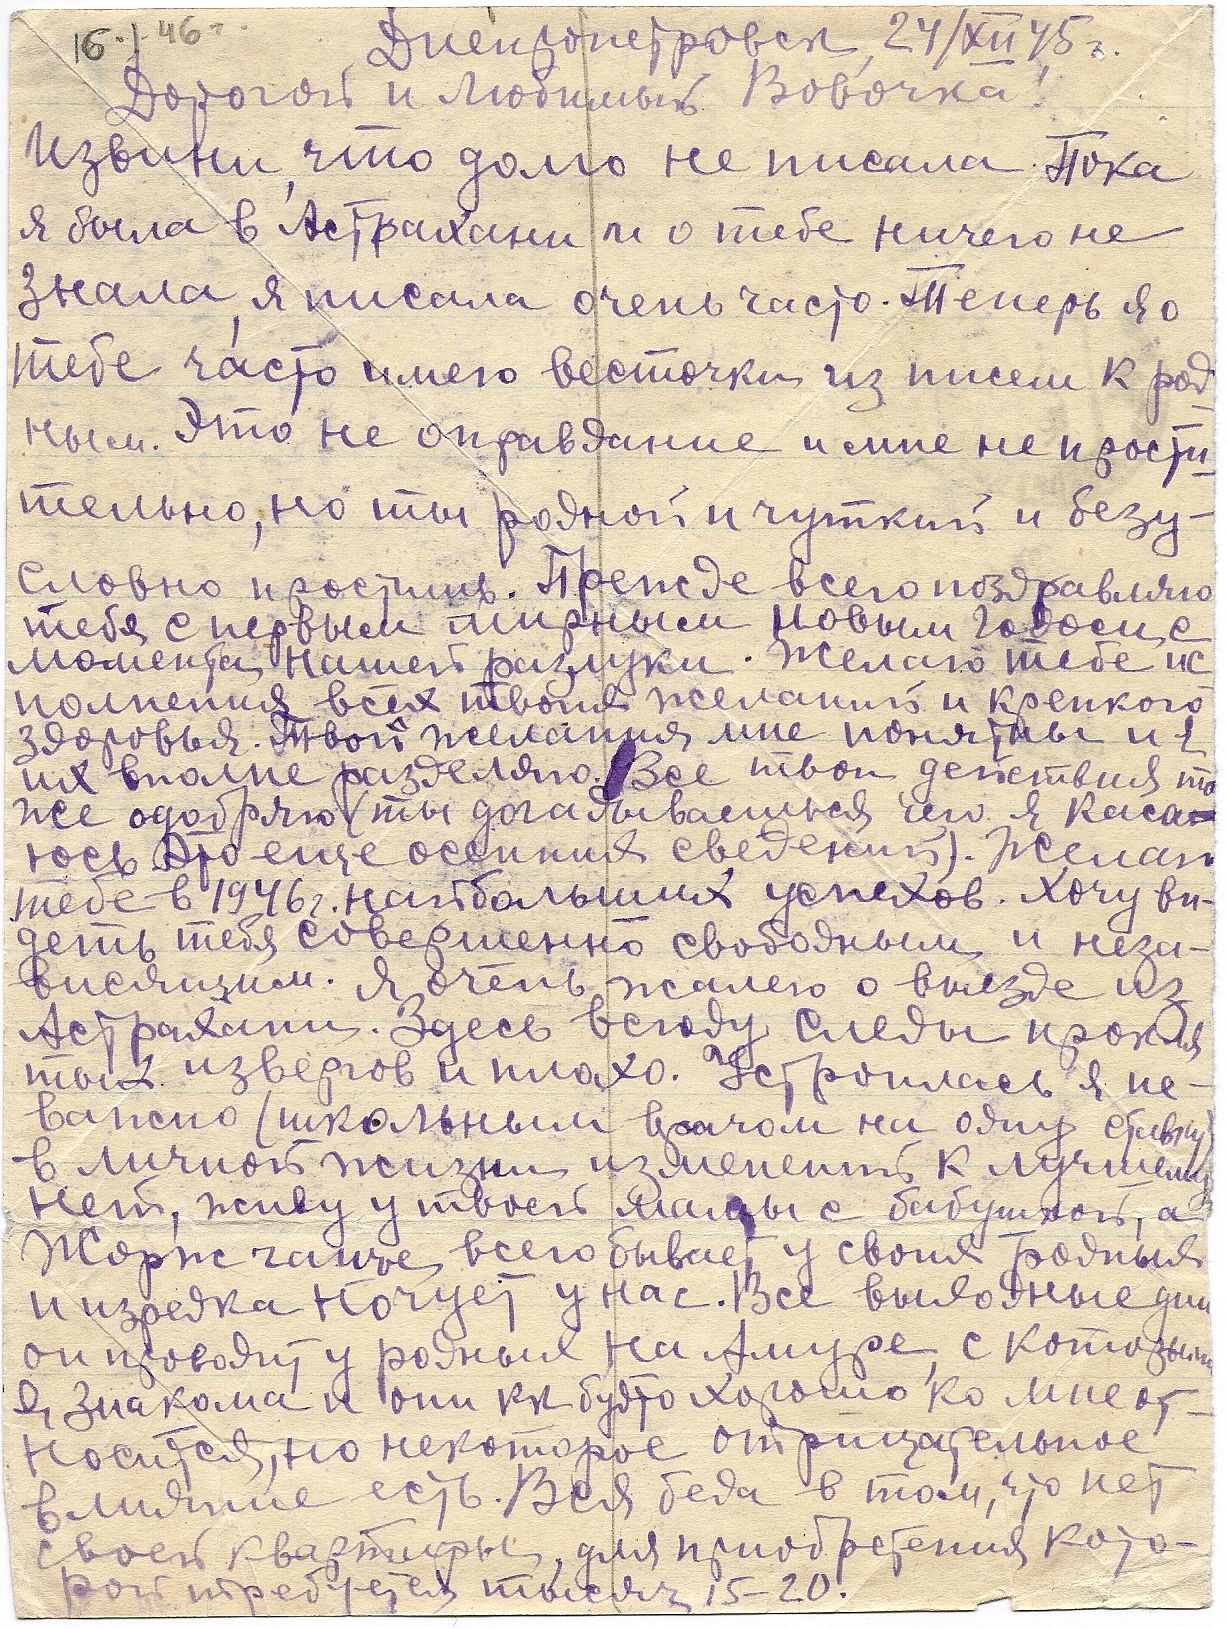 16.I 46 г.
Днепропетровск, 24/XII 45 г.
Дорогой и любимый Вовочка!
Извини, что долго не писала. Пока
я была в Астрахани и о тебе ничего не
знала, я писала очень часто. Теперь я о
тебе часто имею весточки из писем к род
ным. Это не оправдание и мне не прости
тельно, но ты родной и чуткий и безу-
словно простишь. Прежде всего поздравляю
тебя с первым мирным Новым Годом, с
момента нашей разлуки. Желаю тебе ис
полнения всех твоих желаний и крепкого
здоровья. Твои желания мне понятны и я
их вполне разделяю. Все твои действия то
же одобряю (ты догадываешься чего я каса-
юсь это еще осенних сведений). Желаю
тебе в 1946 г. наибольших успехов. Хочу ви-
деть тебя совершенно свободным и неза-
висящим. Я очень жалею о выезде из
Астрахани. Здесь всюду следы прокля
тых извергов и плохо. Устроилась я не-
важно (школьным врачом на одну ставку)
в личной жизни изменений к лучшему
нет, живу у твоей мамы с бабушкой, а
Жорж чаще всего бывает у своих родных
и изредка ночует у нас. Все выходные дни
он проводит у родных на Амуре, с которыми
я знакома и они как будто хорошо ко мне от-
носится, но некоторое отрицательное
влияние есть. Вся беда в том, что нет
своей квартиры, для приобретения кото-
рой требуется тысяч 15-20.